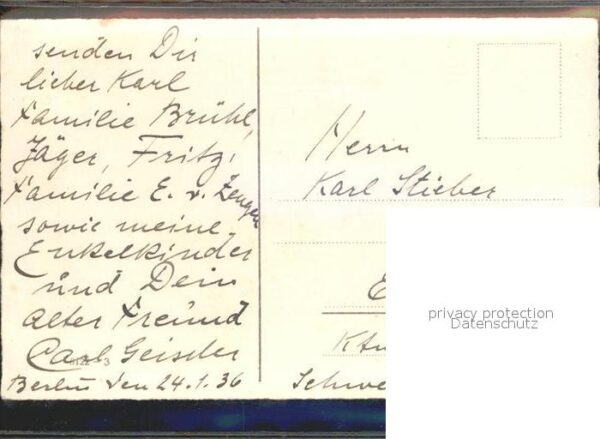 senden Dir
lieber Karl
Familie Brühl,
Jäger, Fritz,
Familie E. v. Zengen
sowie meine
Enkelkinder
und Dein
alter Freund
Carl Geissler
Berlin den 24.1.36
Herrn
Karl Stieber
Schwe
privacy protection
Datenschutz